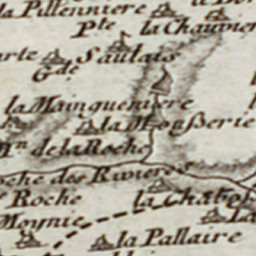 la Pillenniere
Pte la Chauvier
Saulais
Gde
la Mainqueniere
la Mousserie
Mn de la Roche
oche des Rivieres
Roche
la Chabos
Moynie
la Pallaire